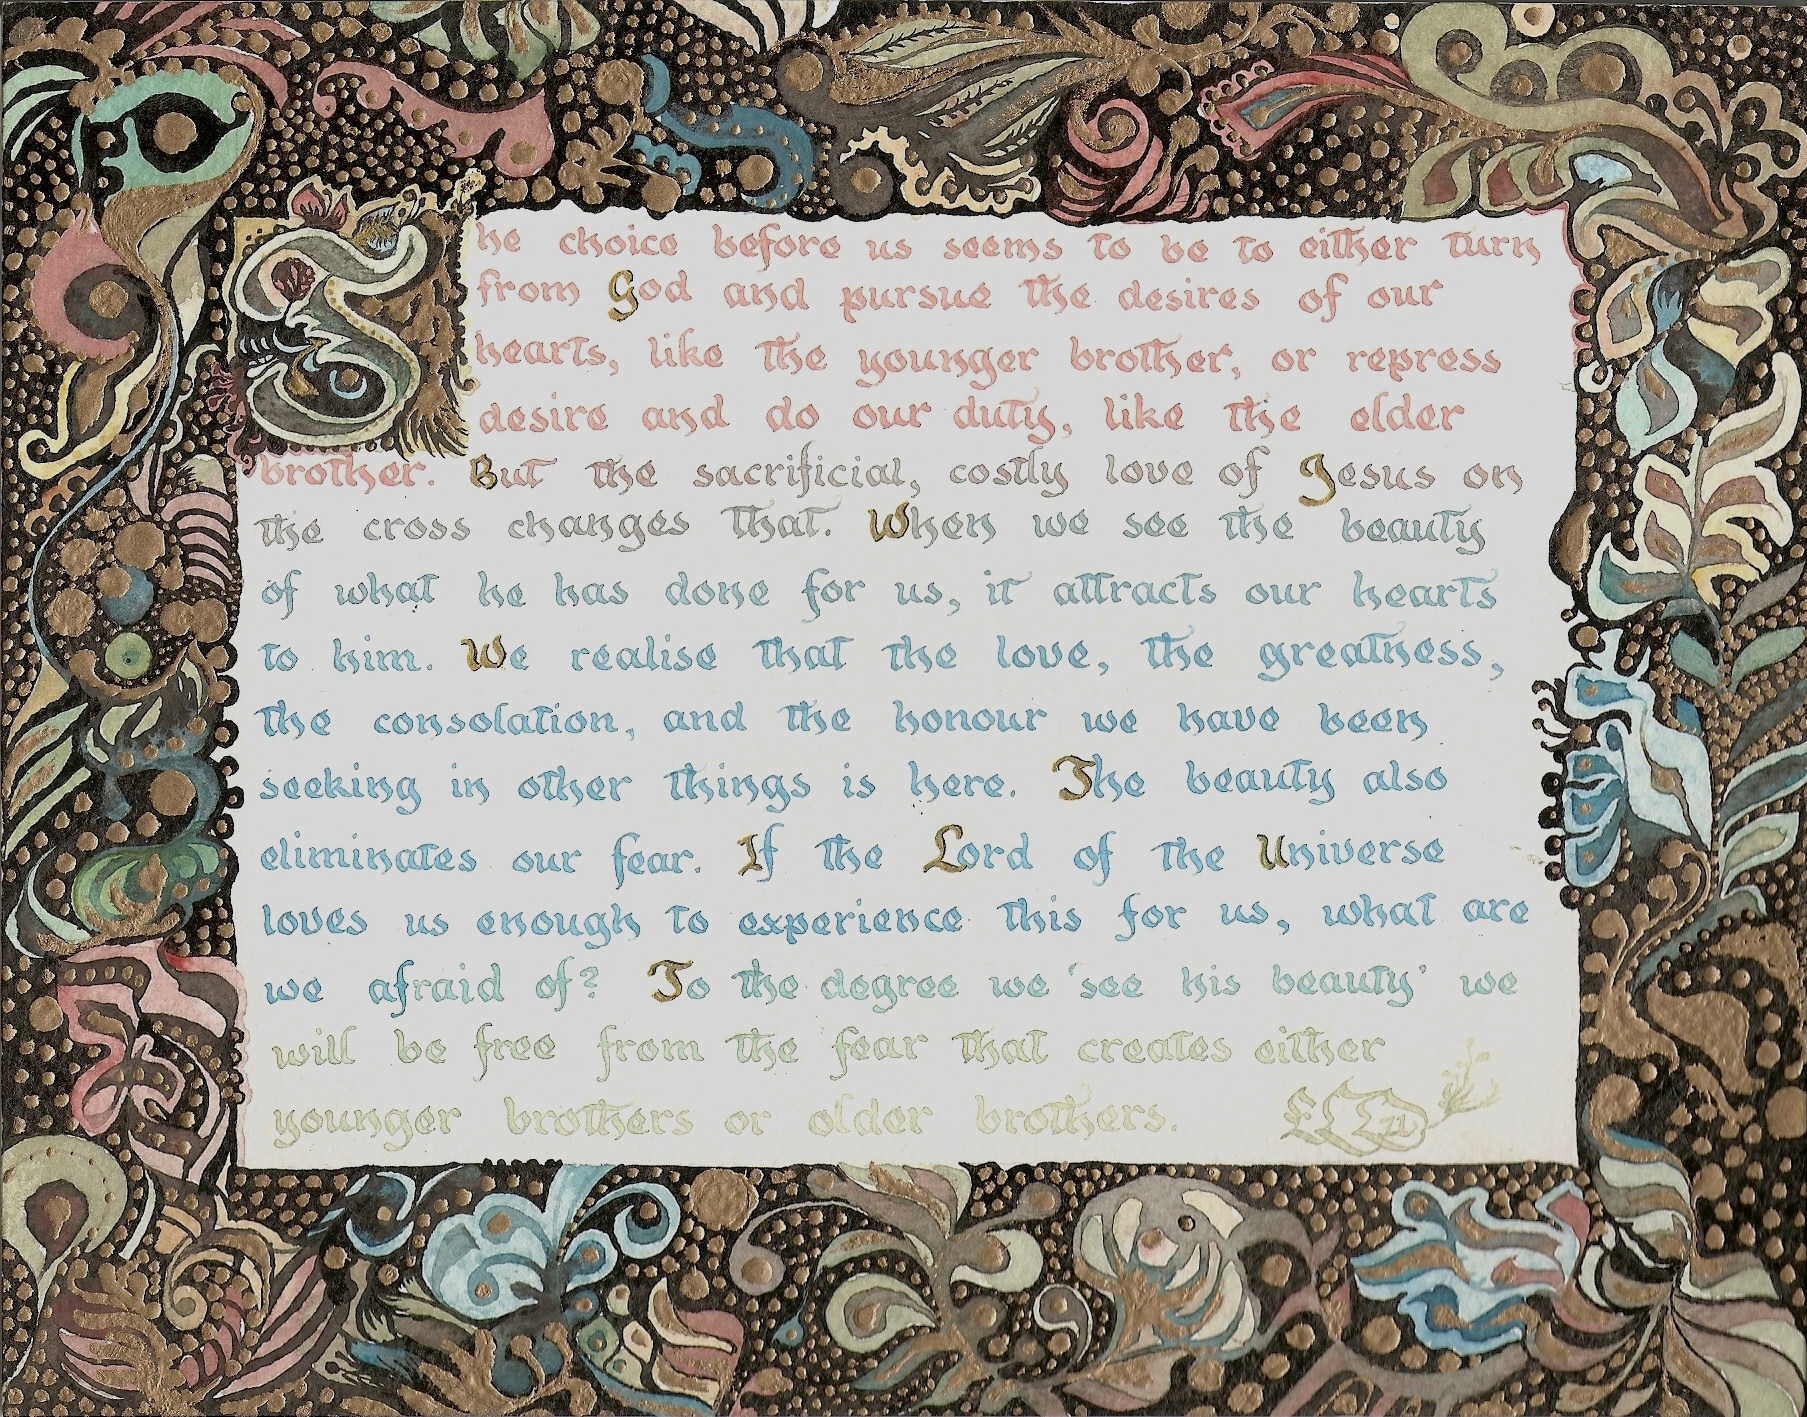 The choice before us seems to be to either turn
from God and pursue the desires of our
hearts, like the younger brother, or repress
desire and do our duty, like the elder
brother. But the sacrificial, costly love of Jesus on
the cross changes that. When we see the beauty
of what he has done for us, it attracts our hearts
to him. We realise that the love, the greatness,
the consolation, and the honour we have been
seeking in other things is here. The beauty also
eliminates our fear. If the Lord of the Universe
loves us enough to experience this for us, what are
we afraid of? To the degree we 'see his beauty' we
will be free from the fear that creates either
younger brothers or older brothers.